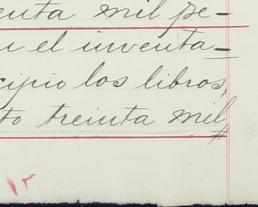 enta mil pe-
el inventa=
cipio los libros,
to treinta mil